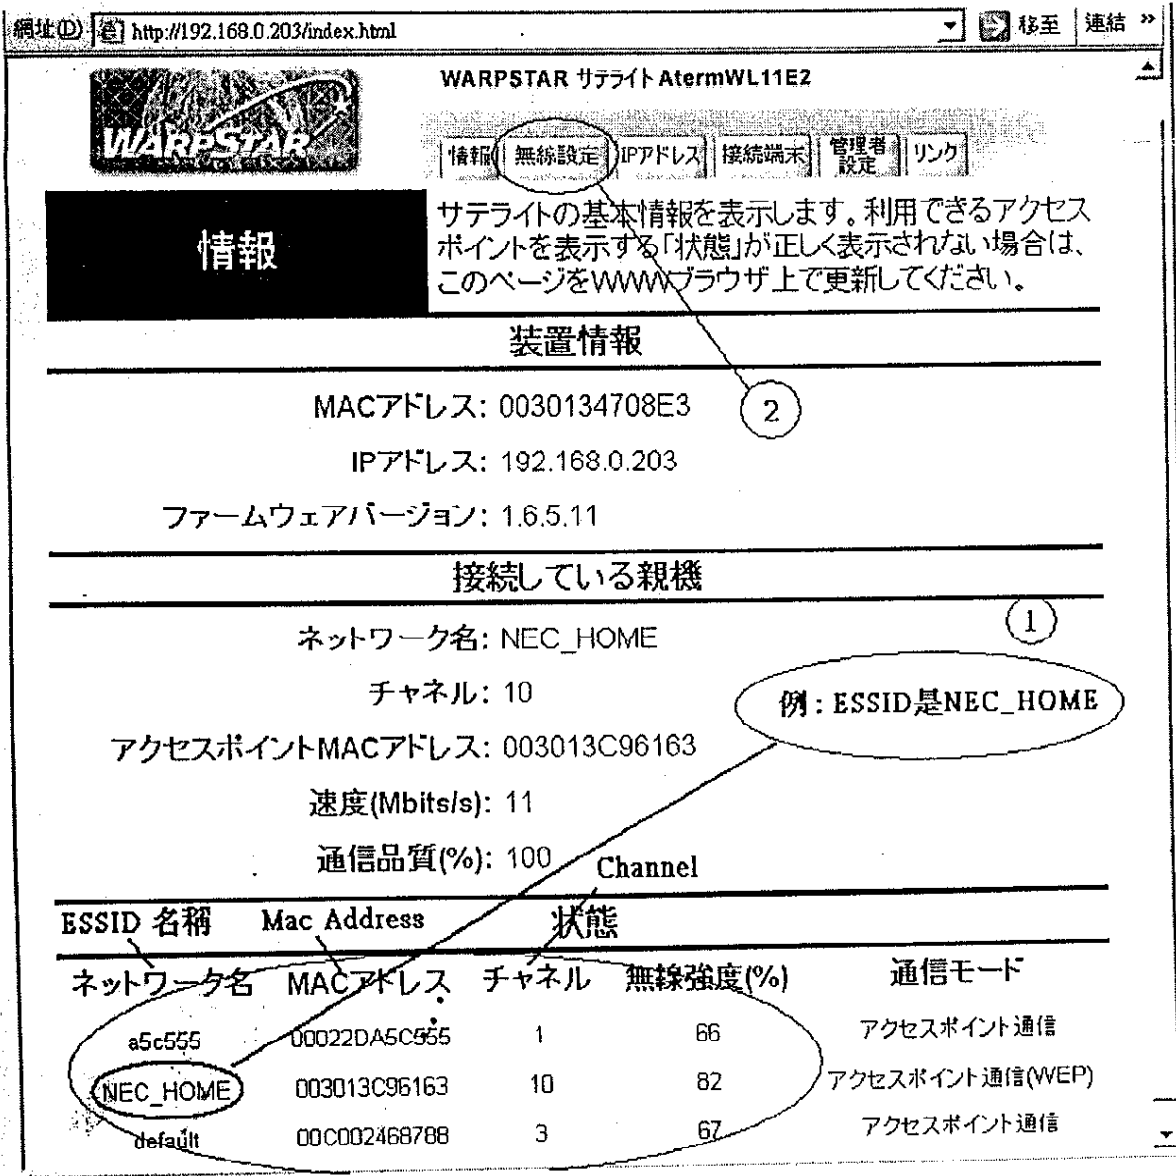 網址(D) http://192.168.0.203/index.html 移至 連結 »
WARPSTAR サテライト AtermWL11E2
WARPSTAR
情報 無線設定 IPアドレス 接続端末 管理者設定 リンク
情報
サテライトの基本情報を表示します。利用できるアクセス
ポイントを表示する「状態」が正しく表示されない場合は、
このページをWWWブラウザ上で更新してください。
装置情報
MACアドレス: 0030134708E3
2
IPアドレス: 192.168.0.203
ファームウェアバージョン: 1.6.5.11
接続している親機
1
ネットワーク名: NEC_HOME
チャネル: 10
例:ESSID是NEC_HOME
アクセスポイントMACアドレス: 003013C96163
速度(Mbits/s): 11
通信品質(%): 100
Channel
ESSID 名稱 Mac Address 状態
ネットワーク名 MACアドレス チャネル 無線強度(%) 通信モード
a5c555 00022DA5C555 1 66 アクセスポイント通信
NEC_HOME 003013C96163 10 82 アクセスポイント通信(WEP)
default 00C002468788 3 67 アクセスポイント通信